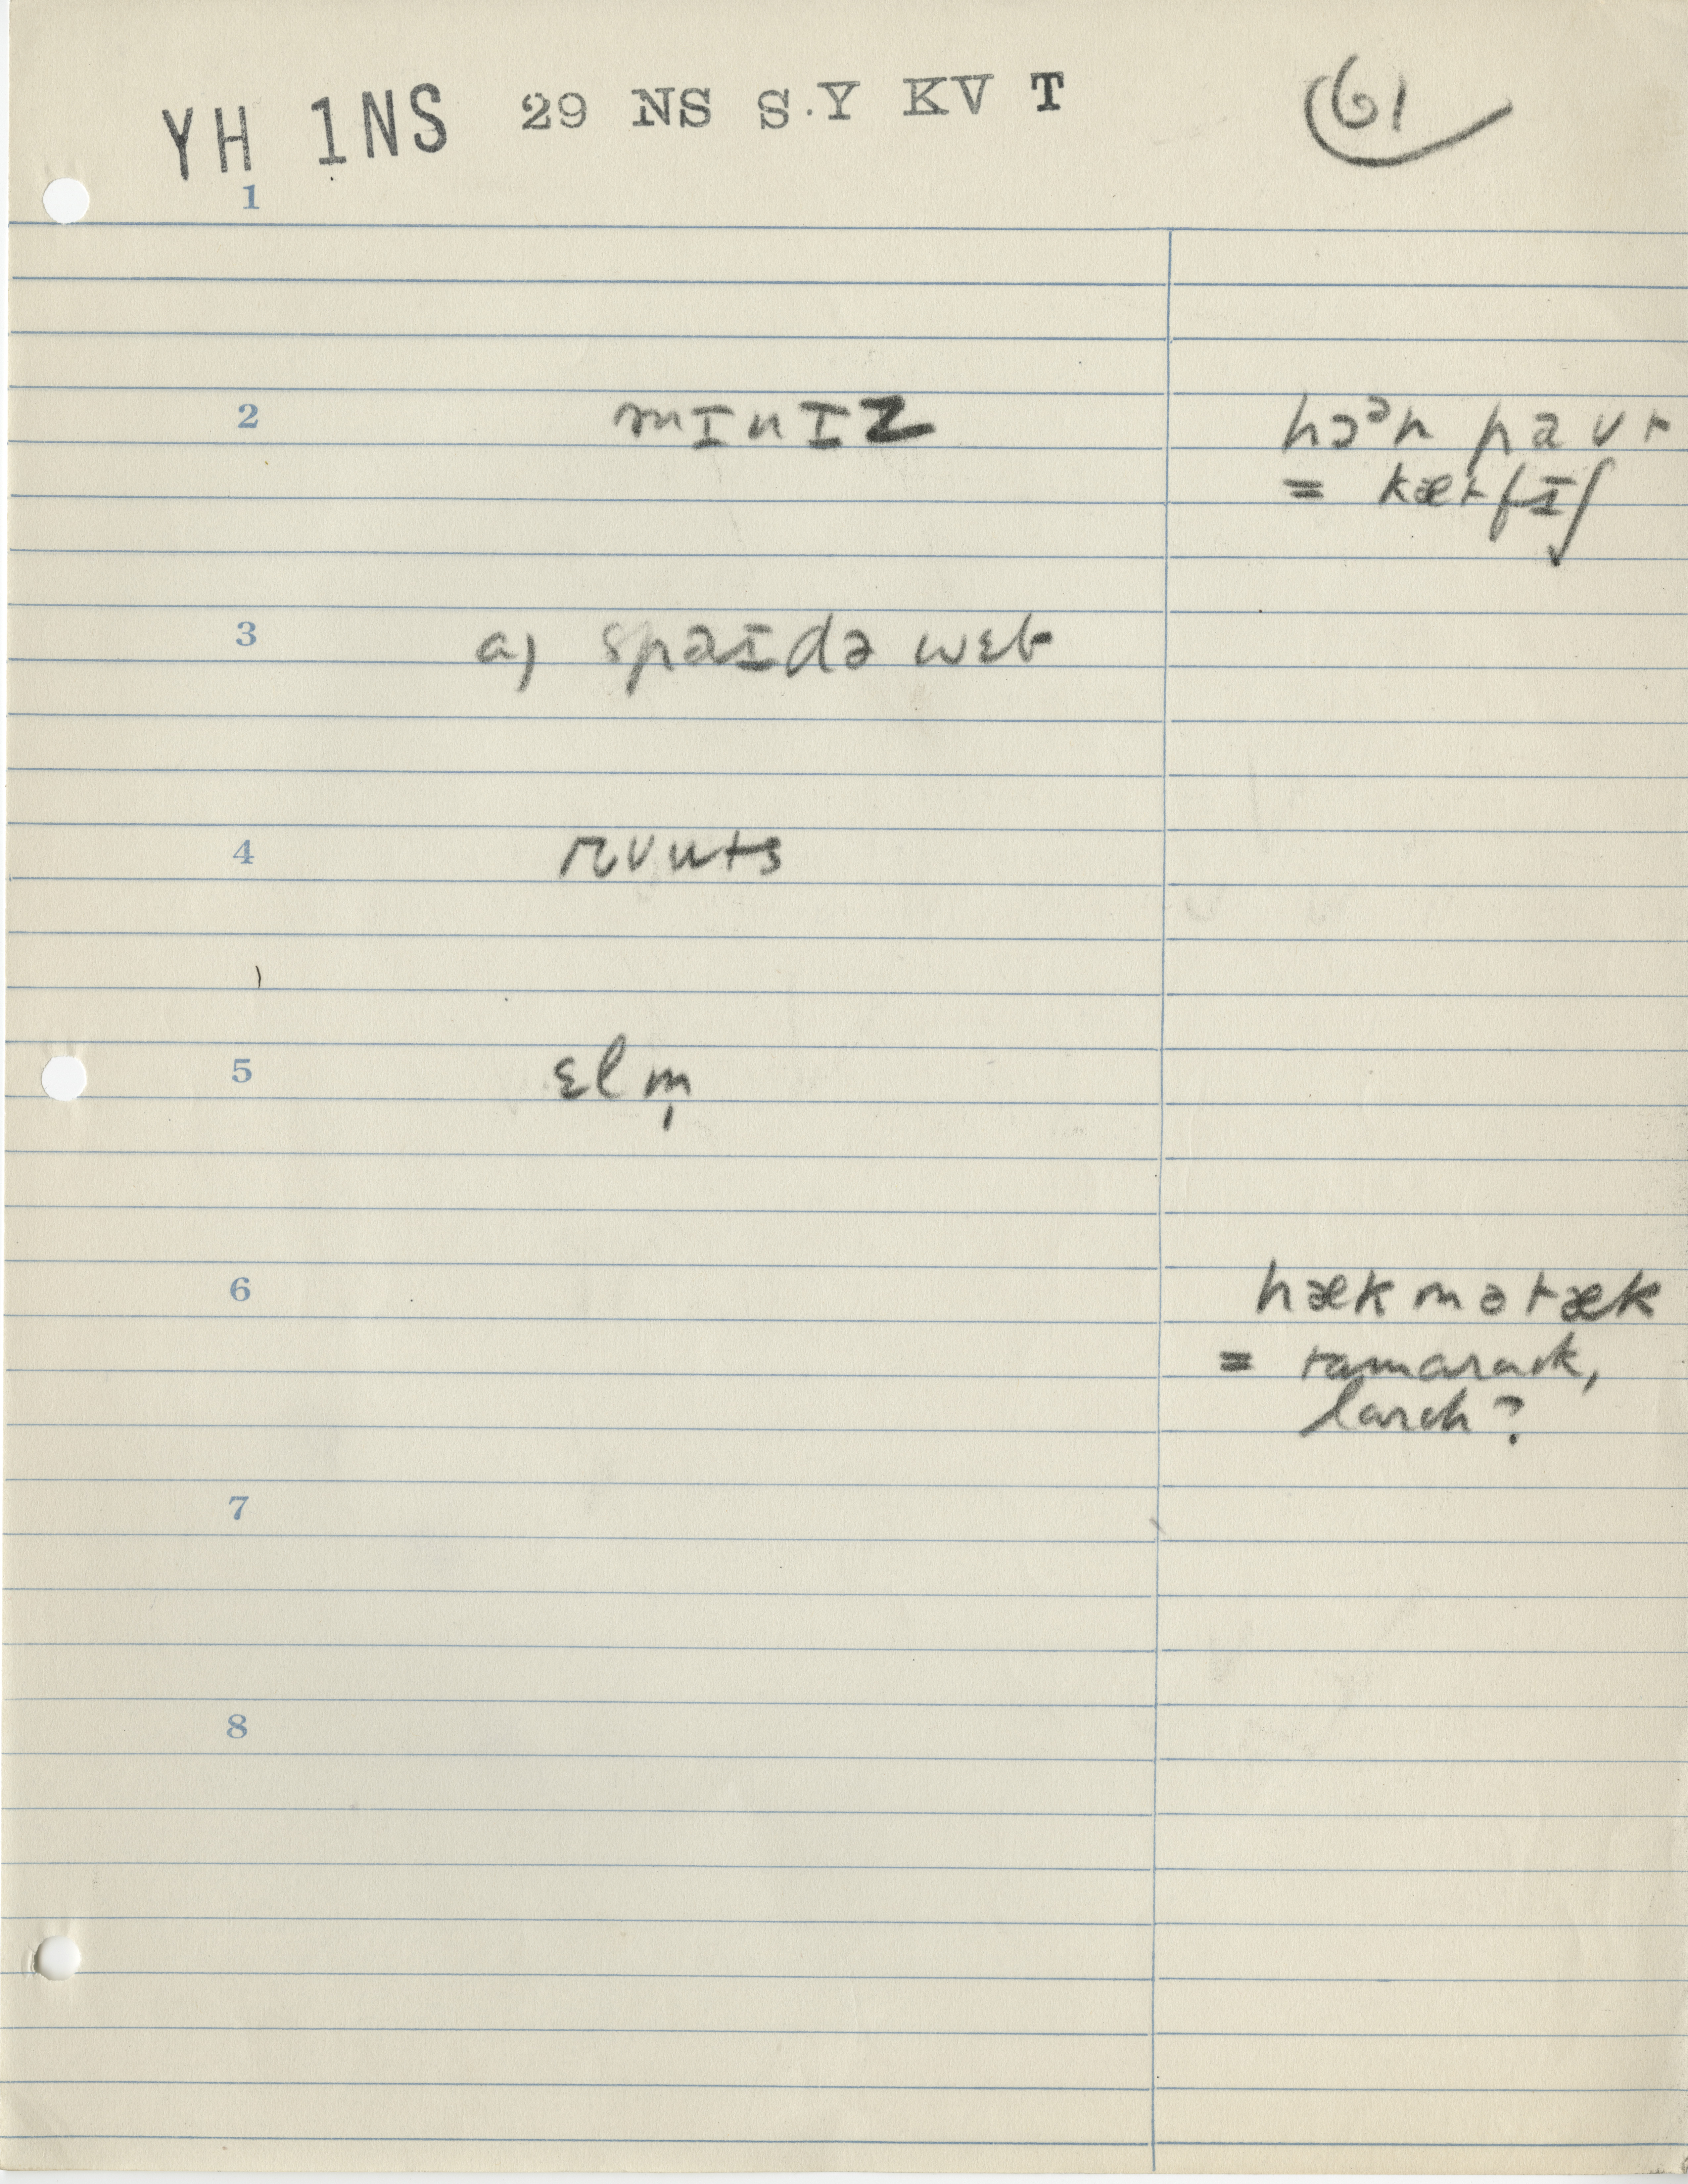 YH 1NS 29 NS S.Y KV T 61
1
2 mɪnɪz hɔᵊn paʊt
= kætfɪʃ
3 a) spaɪdə wɛb
4 rʊuts
5 ɛlm̩
6 hækmətæk
= tamarack,
larch?
7
8